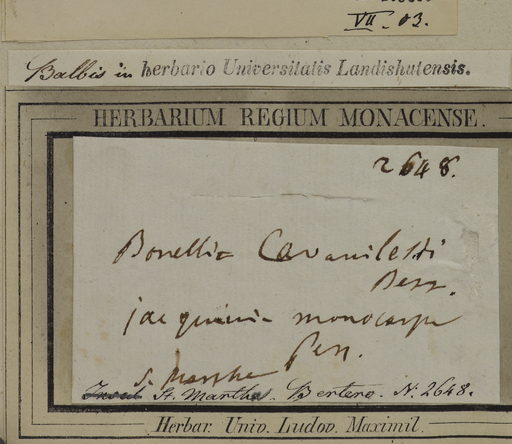 VII. 03.
Balbis in herbario Universitatis Landishutensis.
HERBARIUM REGIUM MONACENSE.
2648.
Bonellia Cavanilesii
Berr.
jacquinia monocarpa
Pers.
S. Marthe
Insul St. Martha. Bertero. N. 2648.
Herbar. Univ. Ludov. Maximil.